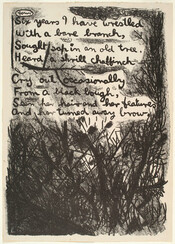 Six years I have wrestled
With a bare branch,
Sought sap in an old tree,
Heard a shrill chaffinch
Cry out occasionally
From a black bough,
Seen her hair and her features
And her turned away brow